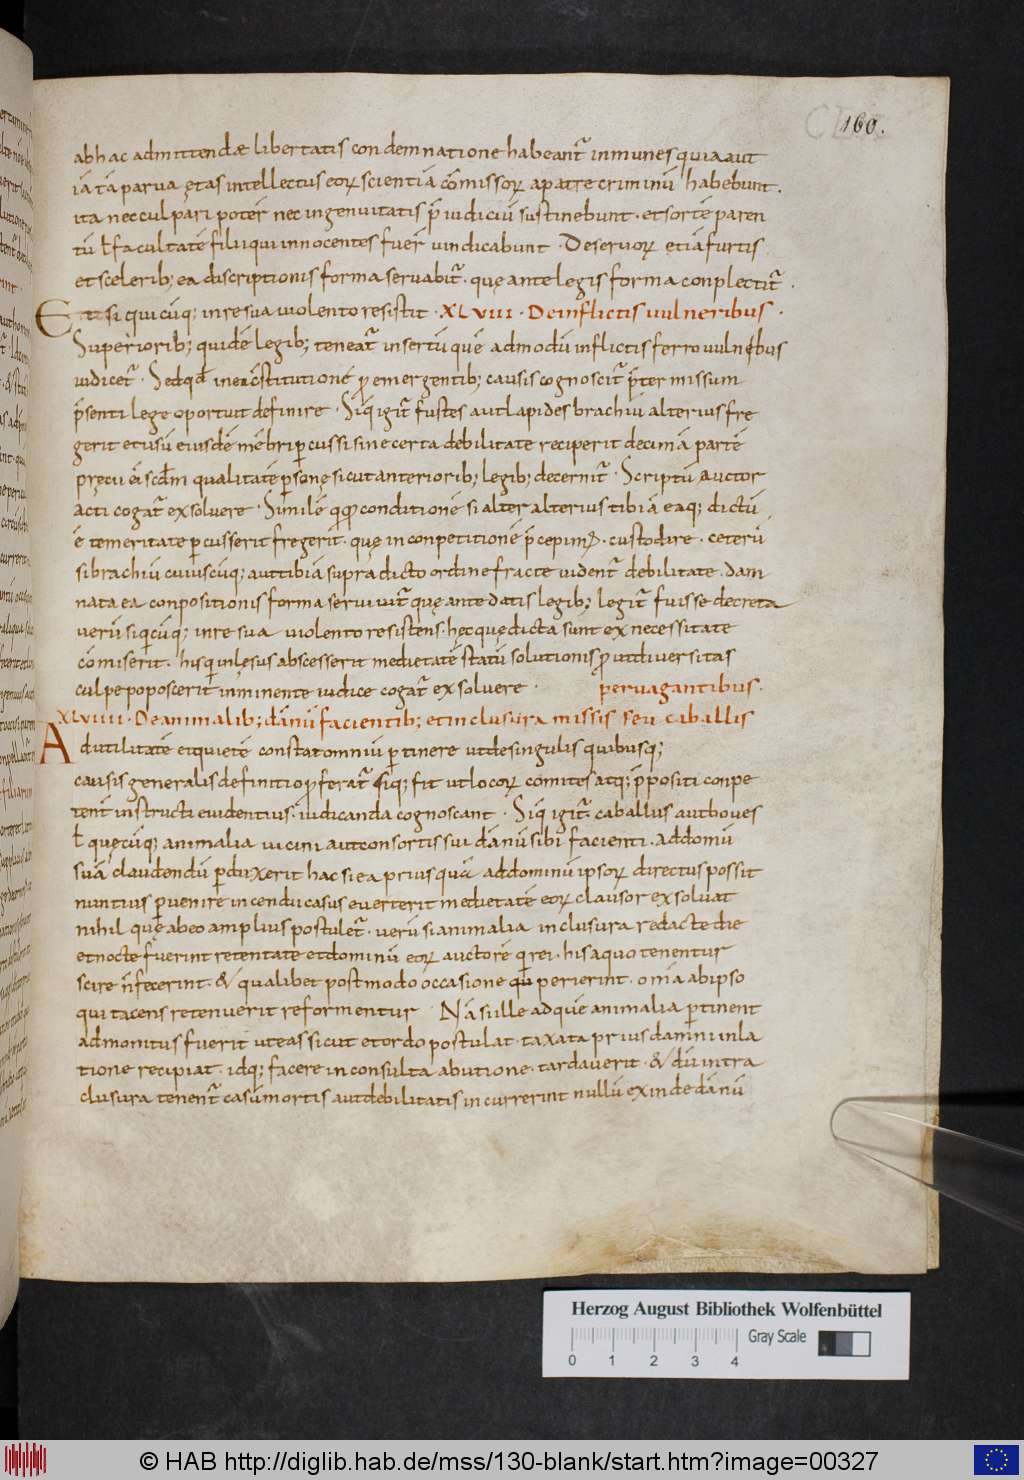 160.
ab hac admittendæ libertatis condemnatione habeant̃ inmunes quia aut
iā tā parua ętas intellectus eoꝝ scientiā cōmissoꝝ a patre criminū habebunt.
ita nec culpari poter̄ nec ingenuitatis p̄iudiciū sustinebunt. et sortē paren
tū ł facultatē filii qui innocentes fuer̄ uindicabunt. De seruoꝝ etiā furtis
et sceleribꝫ ea discriptionis forma seruabit̃. quę ante legis forma conplectit̃.
in re sua uiolento resistit. XLVIII. De inflictis uulneribus.
Superioribꝫ quidē legibꝫ teneat̃ insertū quē admodū inflictis ferro uulneribus
iudicet̃. Sed qđ in ea cstitutionē ꝓ emergentibꝫ causis cognoscit̃ p̄termissum
p̄senti lege oportuit definire. Siq̇ igit̃ fustes aut lapides brachiū alterius fre
gerit et usū eiusdē mēbri ꝑcussi sine certa debilitate reciperit decimā partē
pręcii ei scđm qualitatē ꝑsonę sicut anterioribꝫ legibꝫ decernit̃. Scriptū auctor
acti cogat̃ exsolvere. Similē conditionē si alter alterius tibiā eaqꝫ dictū
ē temeritate ꝑcusserit fregerit. quę in conpetitionē p̄cepim᷒. custodire. ceterū
si brachiū cuiuscūqꝫ aut tibiā supradicto ordine fracte uident̃ debilitate. dam
nata ea conpositionis forma seruiuit̃ quę ante datis legibꝫ legit̃ fuisse decreta
uerū siq̇cūqꝫ in re sua uiolento resistens. hęc quę dicta sunt ex necessitate
cōmiserit. his qui inlęsus abscesserit medietatē statū solutionis ꝓ ut diuersitas
culpe poposcerit inminente iudice cogat̃ exsoluere. peruagantibus.
XLVIIII. De animalibꝫ dānū facientibꝫ et in clusura missis seu caballis
Ad utilitatē et quietē constat omniū ꝑtinere ut de singulis quibusqꝫ
causis generalis definitio ꝓferat̃ sicqꝫ fit ut locoꝝ comites atqꝫ p̄positi conpe
tent̃ instructi euidentius. iudicanda cognoscant. Siq̇ igit̃. caballus aut boues
ł quęcūqꝫ animalia uicini aut consortis sui dānū sibi facienti. ad domū
suā claudendū ꝑduxerit hac si ea prius quā ad dominū ipsoꝝ directus possit
nuntius ꝑuenire incendii casus euerterit medietatē eoꝝ clausor exsoluat
nihil quę ab eo amplius postulet̃. uerū si animalia in clusura redacte die
et nocte fuerint retentate et dominū eoꝝ auctorē q̇ rei. his a quo tenentur
scire n̄ fecerint. & qualibet postmodo occasione perierint. omīa ab ipso
qui tacens retenuerit reformentur. Nā si ille ad quē animalia ꝑtinent
admonitus fuerit ut eas sicut et ordo postulat. taxata prius damni inla
tione recipiat. idqꝫ facere inconsulta abutione. tardauerit. & dū intra
clusura tenent̃ casū mortis aut debilitatis incurrerint nullū exinde dānū
Herzog August Bibliothek Wolfenbüttel
Gray Scale
0 1 2 3 4
© HAB http://diglib.hab.de/mss/130-blank/start.htm?image=00327